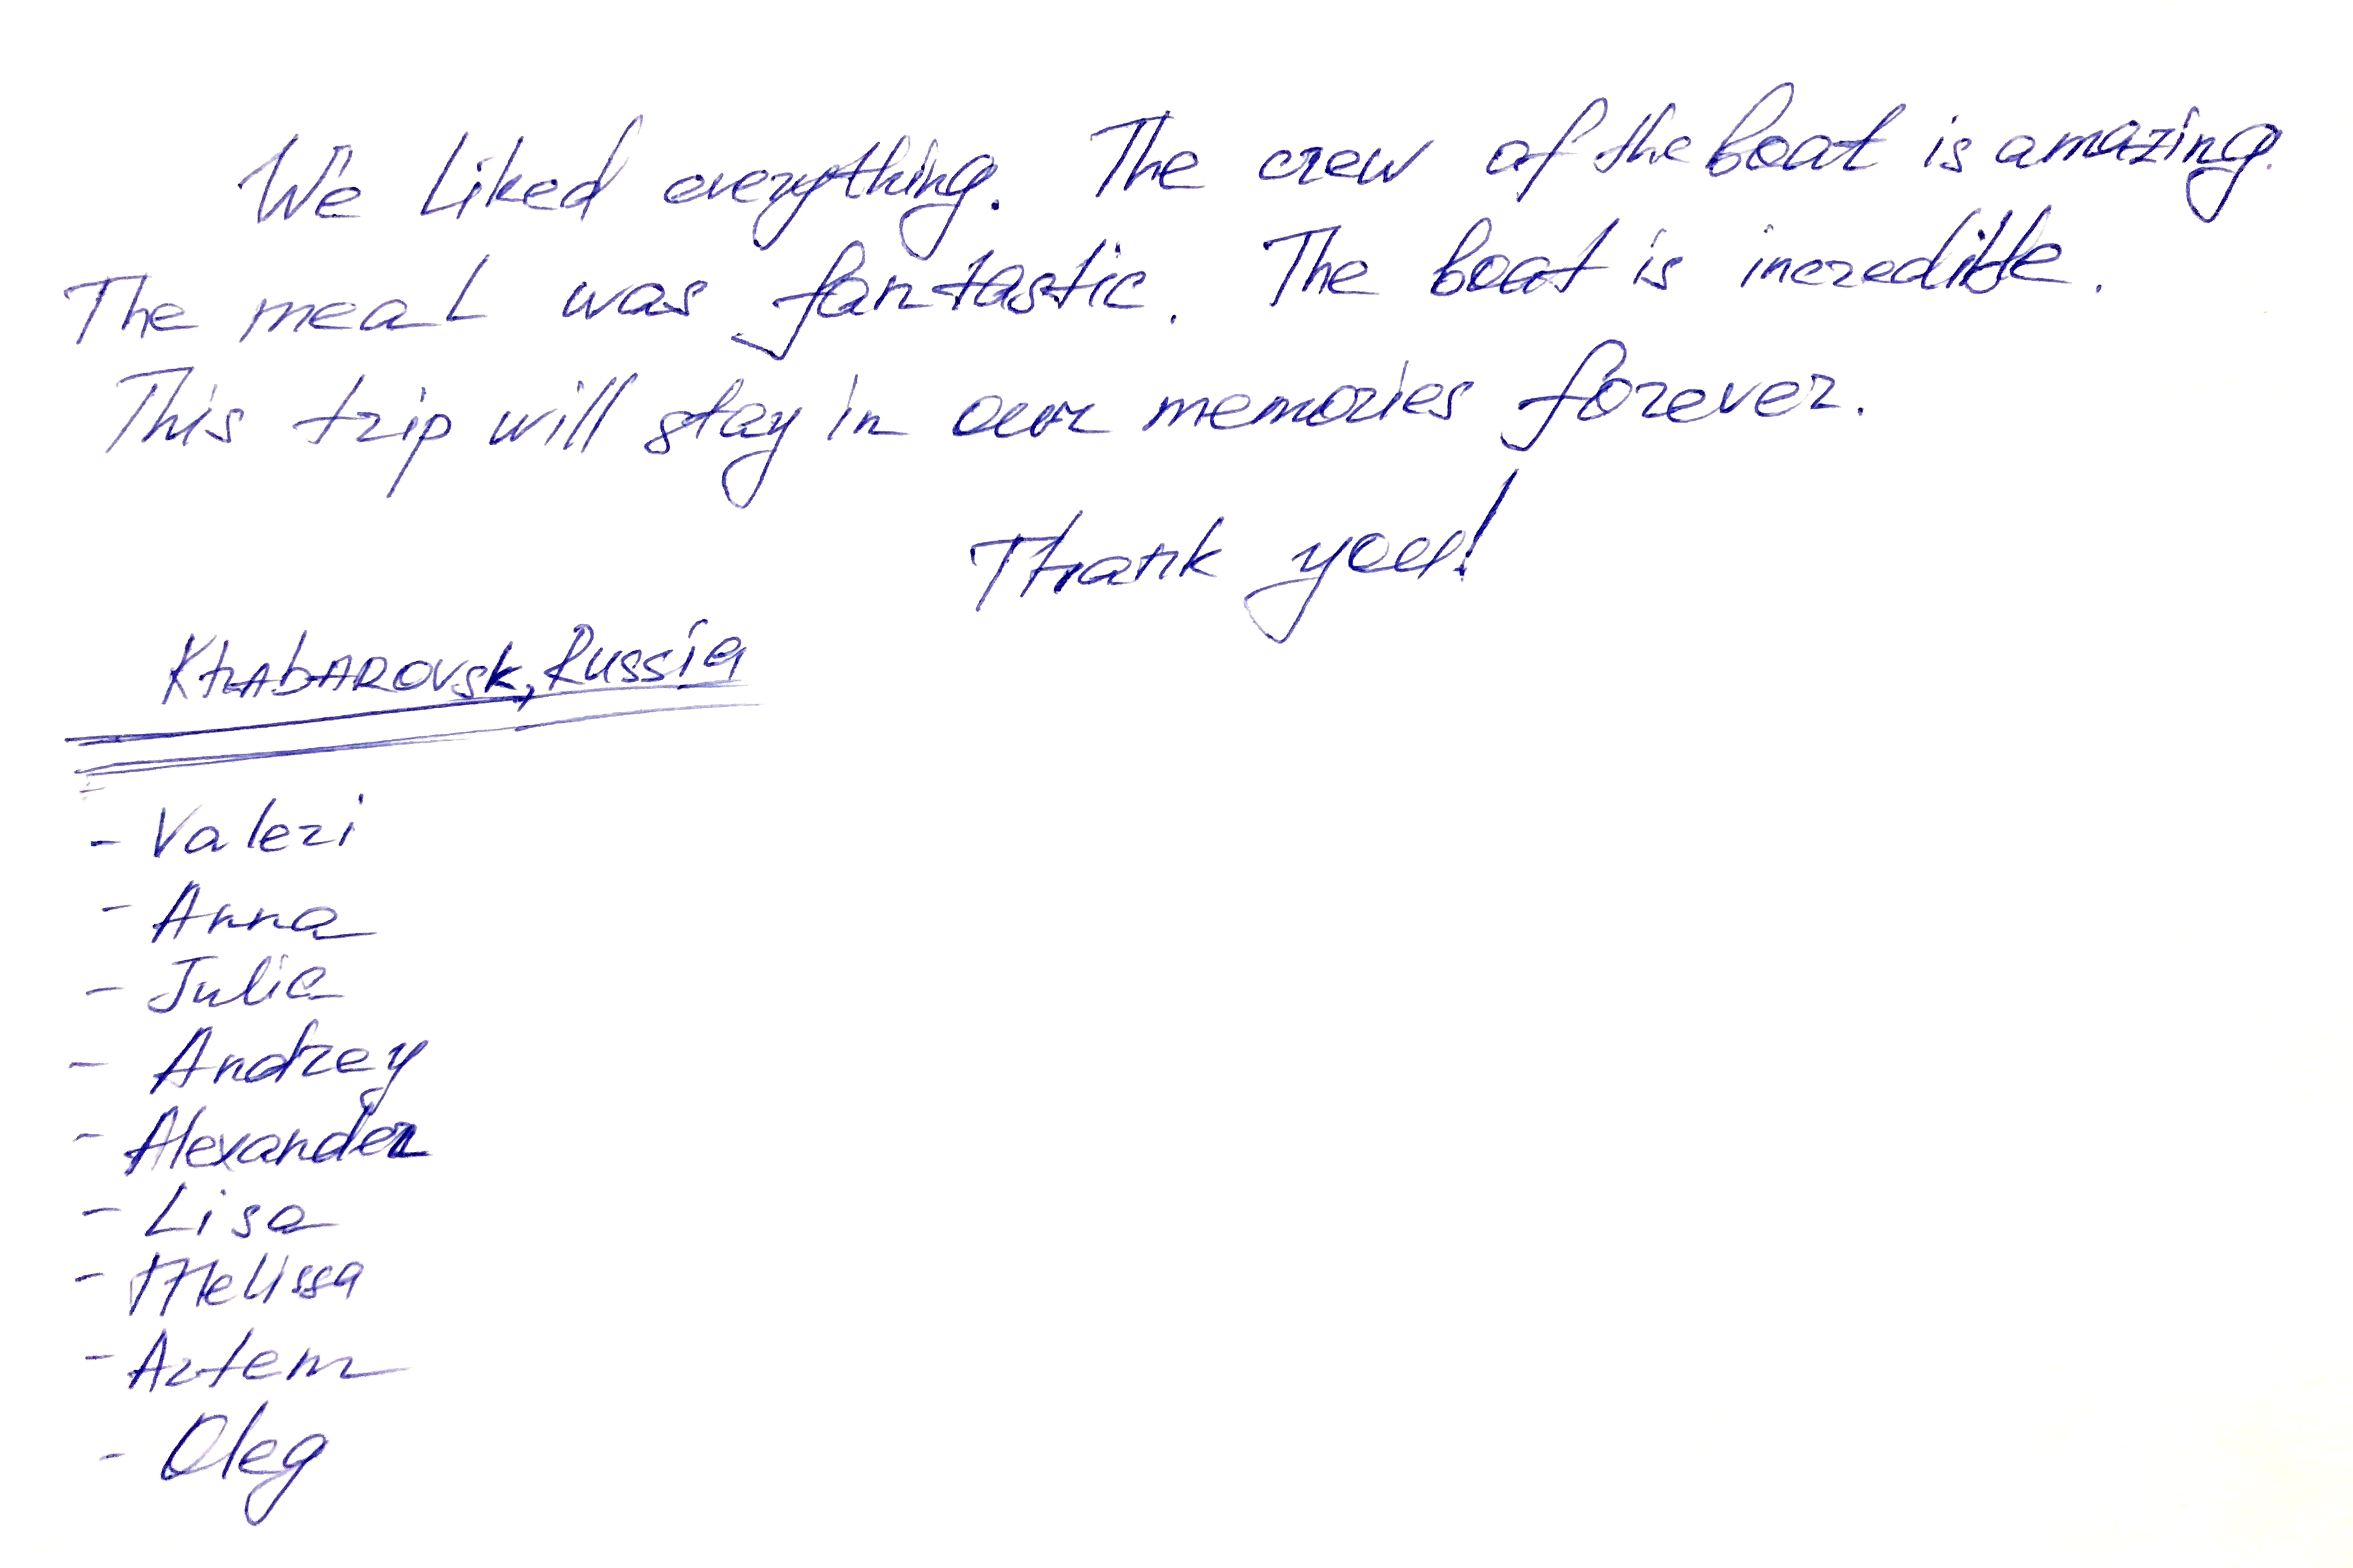 We liked everything. The crew of the boat is amazing.
The meal was fantastic. The boat is incredible.
This trip will stay in our memories forever.
Thank you!
Khabarovsk, Russia
- Valeri
- Anna
- Julia
- Andrey
- Alexander
- Lisa
- Melissa
- Artem
- Oleg